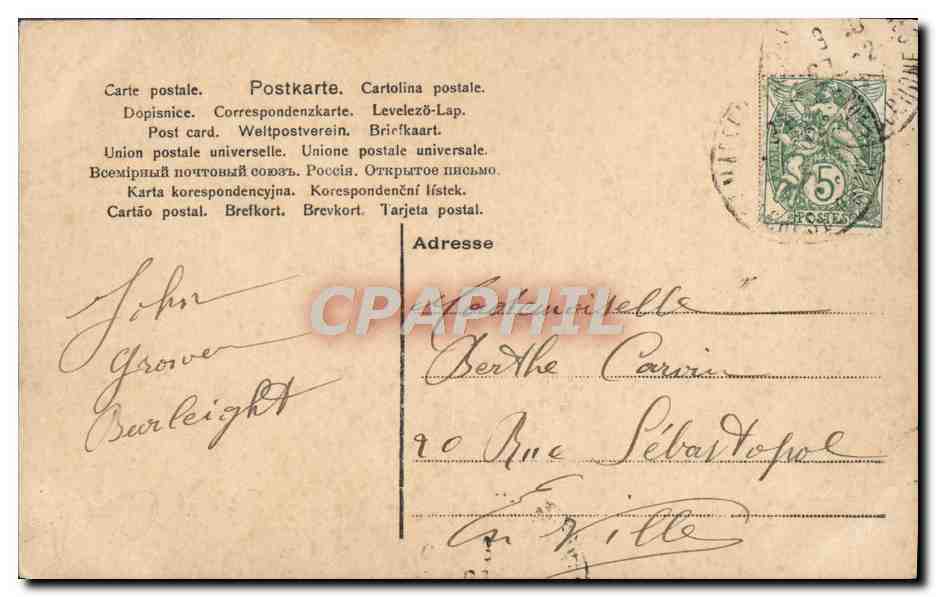 Carte postale. Postkarte. Cartolina postale.
Dopisnice. Correspondenzkarte. Levelezö-Lap.
Post card. Weltpostverein. Briefkaart.
Union postale universelle. Unione postale universale.
Всемірный почтовый союзъ. Россія. Открытое письмо.
Karta korespondencyjna. Korespondenční lístek.
Cartão postal. Brefkort. Brevkort. Tarjeta postal.
5c
POSTES
Adresse
John
Grower
Burleight
Mademoiselle
Berthe Carvin
20 Rue Sébastopol
En Ville
CPAPHIL